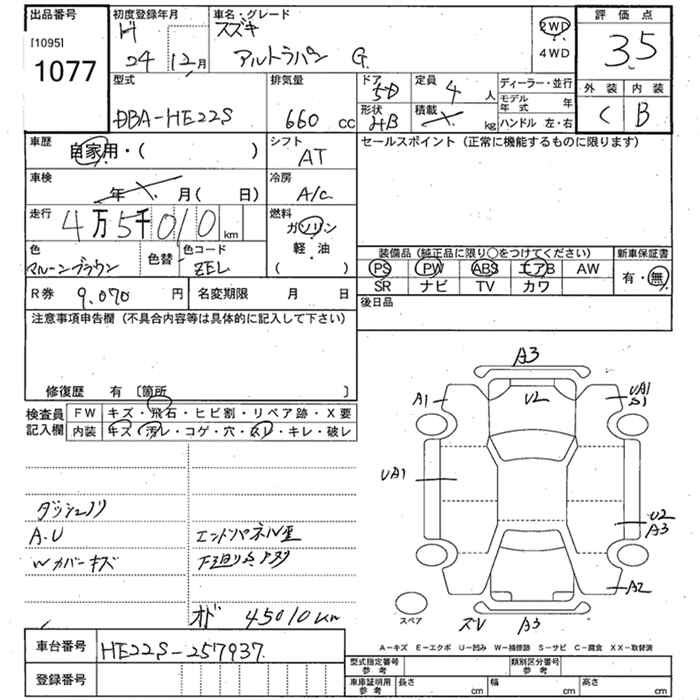 出品番号
[1095]
1077
初度登録年月
H
24 12月
車名・グレード
スズキ
アルトラパン G
2WD
4WD
評価点
3.5
外装 内装
C B
型式
DBA-HE22S
排気量
660 cc
ドア
5D
形状
HB
定員
4 人
積載
kg
ディーラー・並行
モデル年式 年
ハンドル 左・右
車歴
自家用・( )
シフト
AT
セールスポイント (正常に機能するものに限ります)
車検
年 月 ( 日)
冷房
A/C
走行
4万5千010 km
燃料
ガソリン
軽・油
( )
色
マルーンブラウン
色替
色コード
ZEL
装備品 (純正品に限り○をつけてください)
PS PW ABS エアB AW
SR ナビ TV カワ
新車保証書
有・無
R券 9,070 円
名変期限 月 日
後日品
注意事項申告欄 (不具合内容等は具体的に記入して下さい)
修復歴 有 〔箇所 〕
検査員記入欄
FW キズ・飛石・ヒビ割・リペア跡・X要
内装 キズ・汚レ・コゲ・穴・スレ・キレ・破レ
A3
A1
U2
UA1
S1
UA1
U2
A3
A2
A3
スペア
A.U
Wカバーキズ
エンドパネル歪
オド 45010km
A-キズ E-エクボ U-凹み W-補修跡 S-サビ C-腐食 XX-取替済
車台番号
HE22S-257937
登録番号
型式指定番号 参考
類別区分番号 参考
車庫証明用 参考
長さ cm
幅 cm
高さ cm